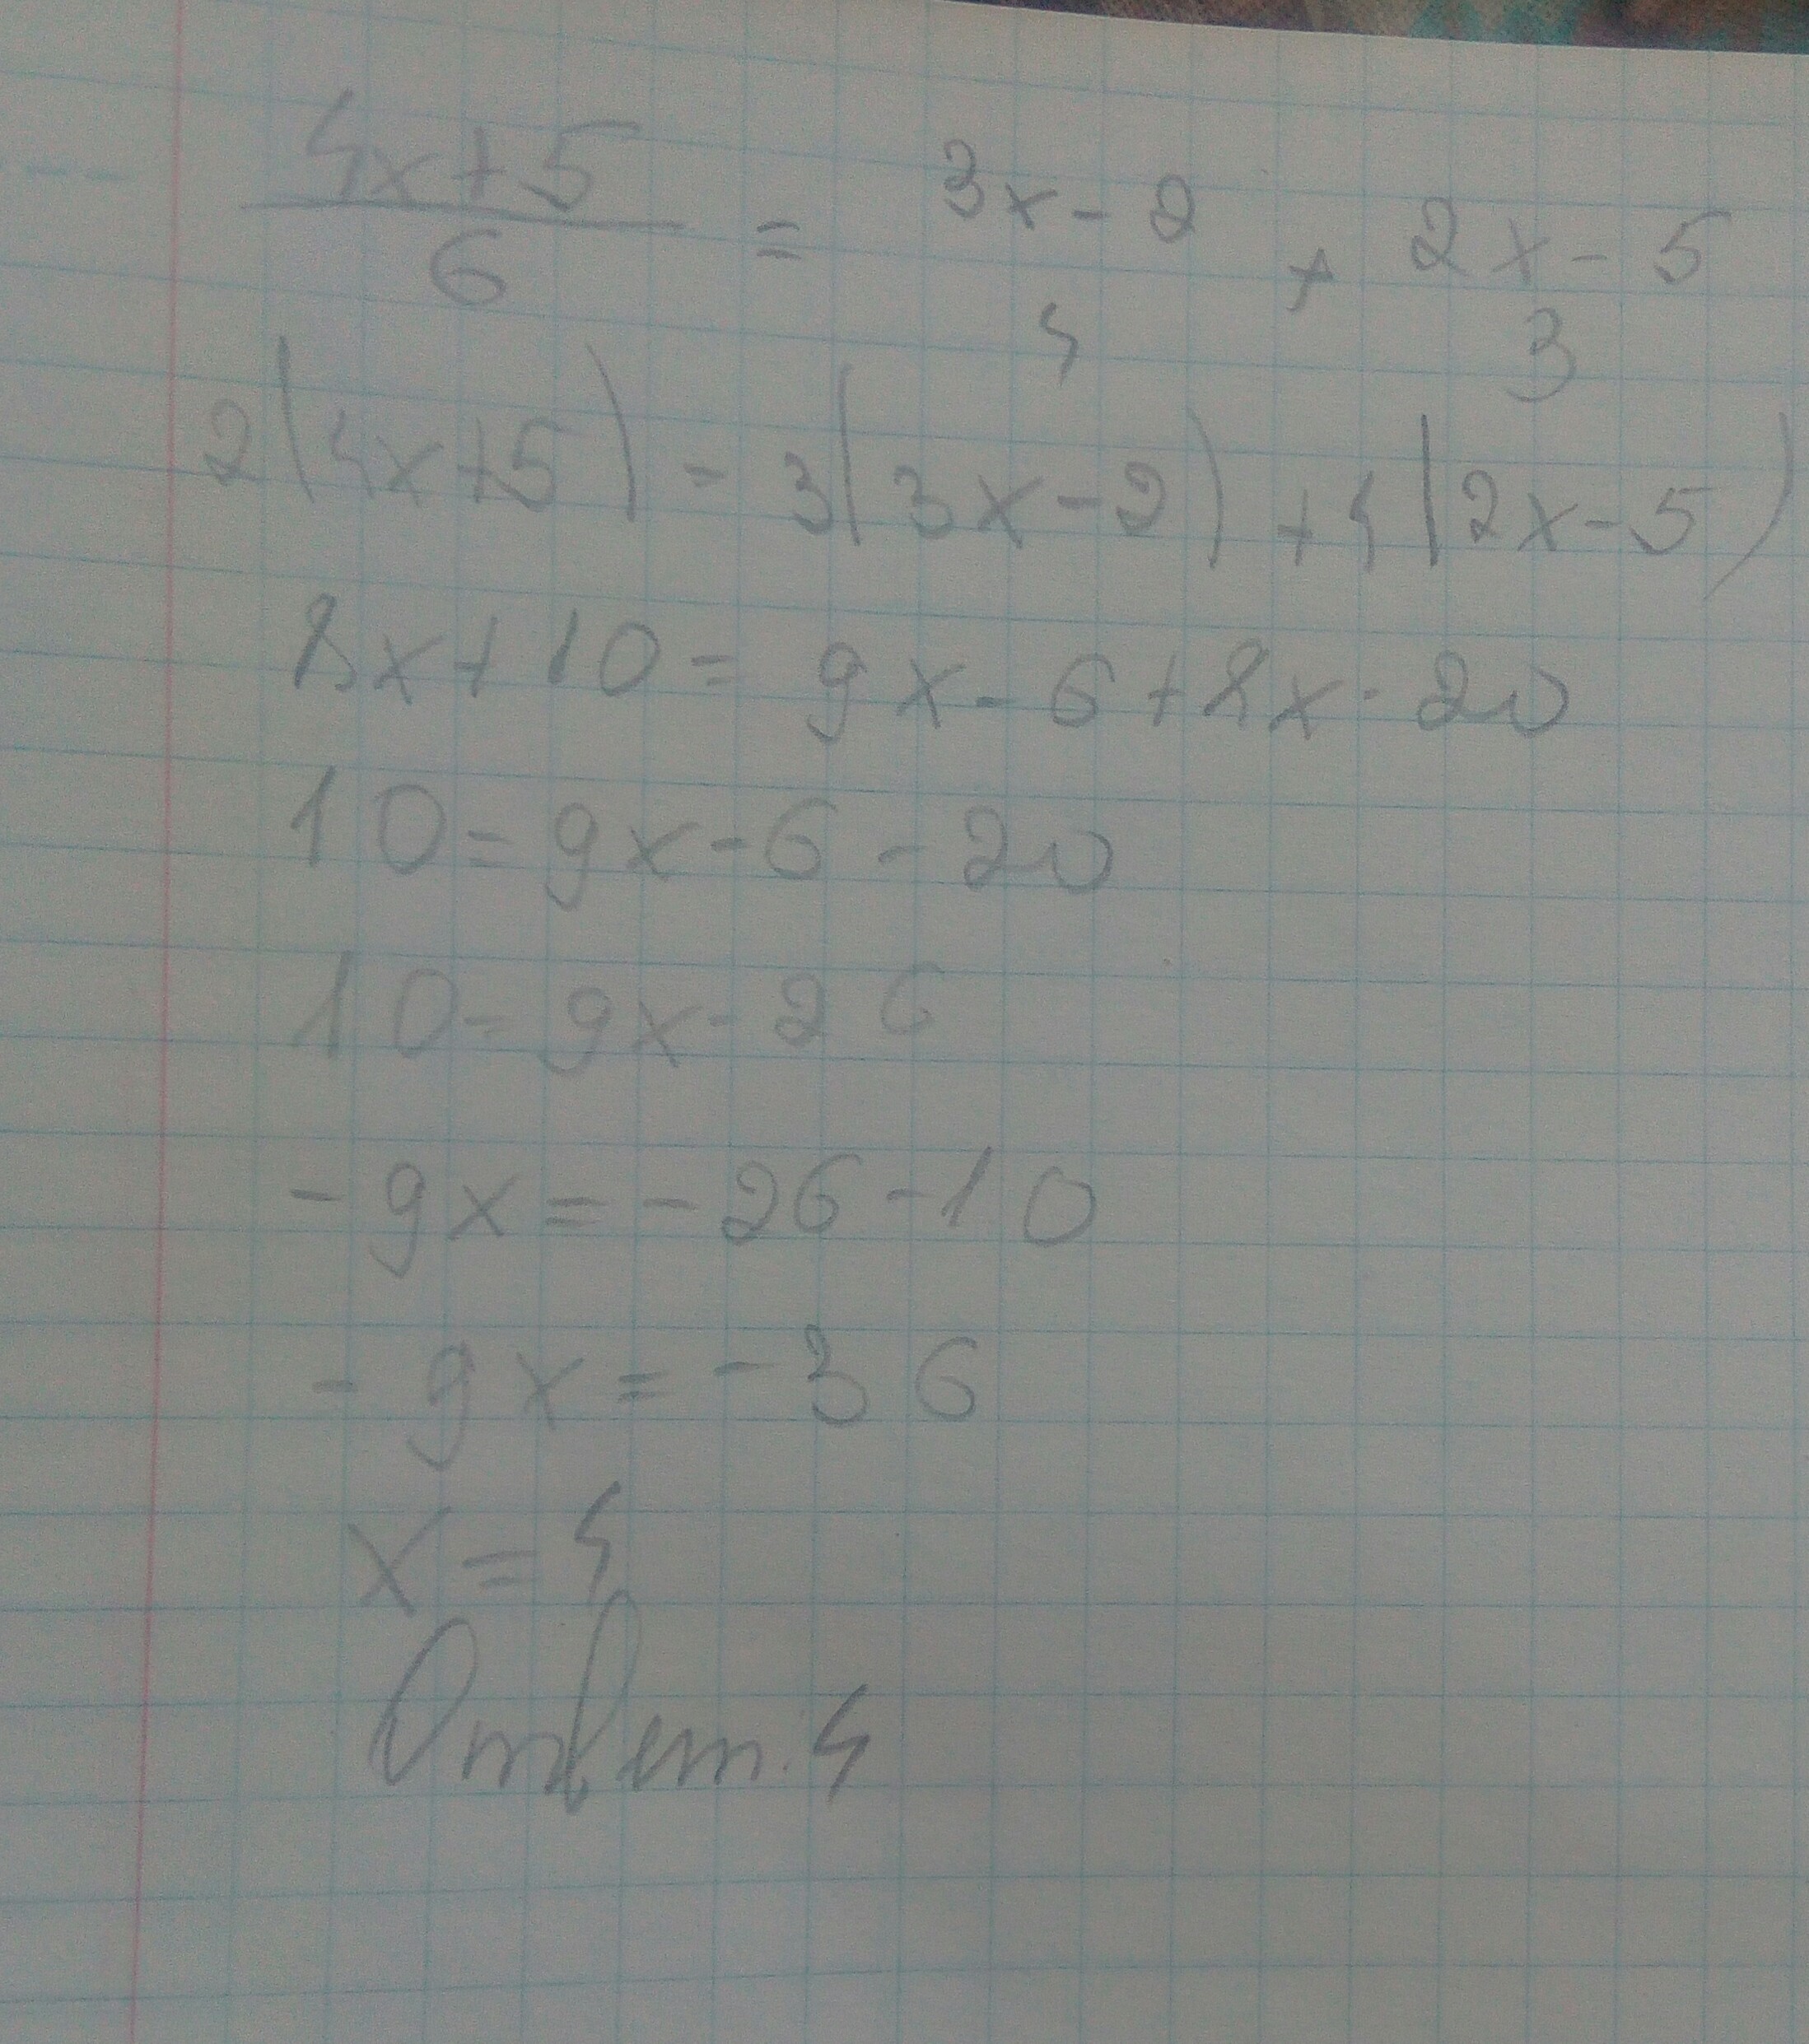 4x+5 = 3x-2 + 2x-5
6 4 3
2(4x+5) = 3(3x-2) + 4(2x-5)
8x+10 = 9x-6+8x-20
10=9x-6-20
10=9x-26
-9x=-26-10
-9x=-36
x=4
Ответ. 4